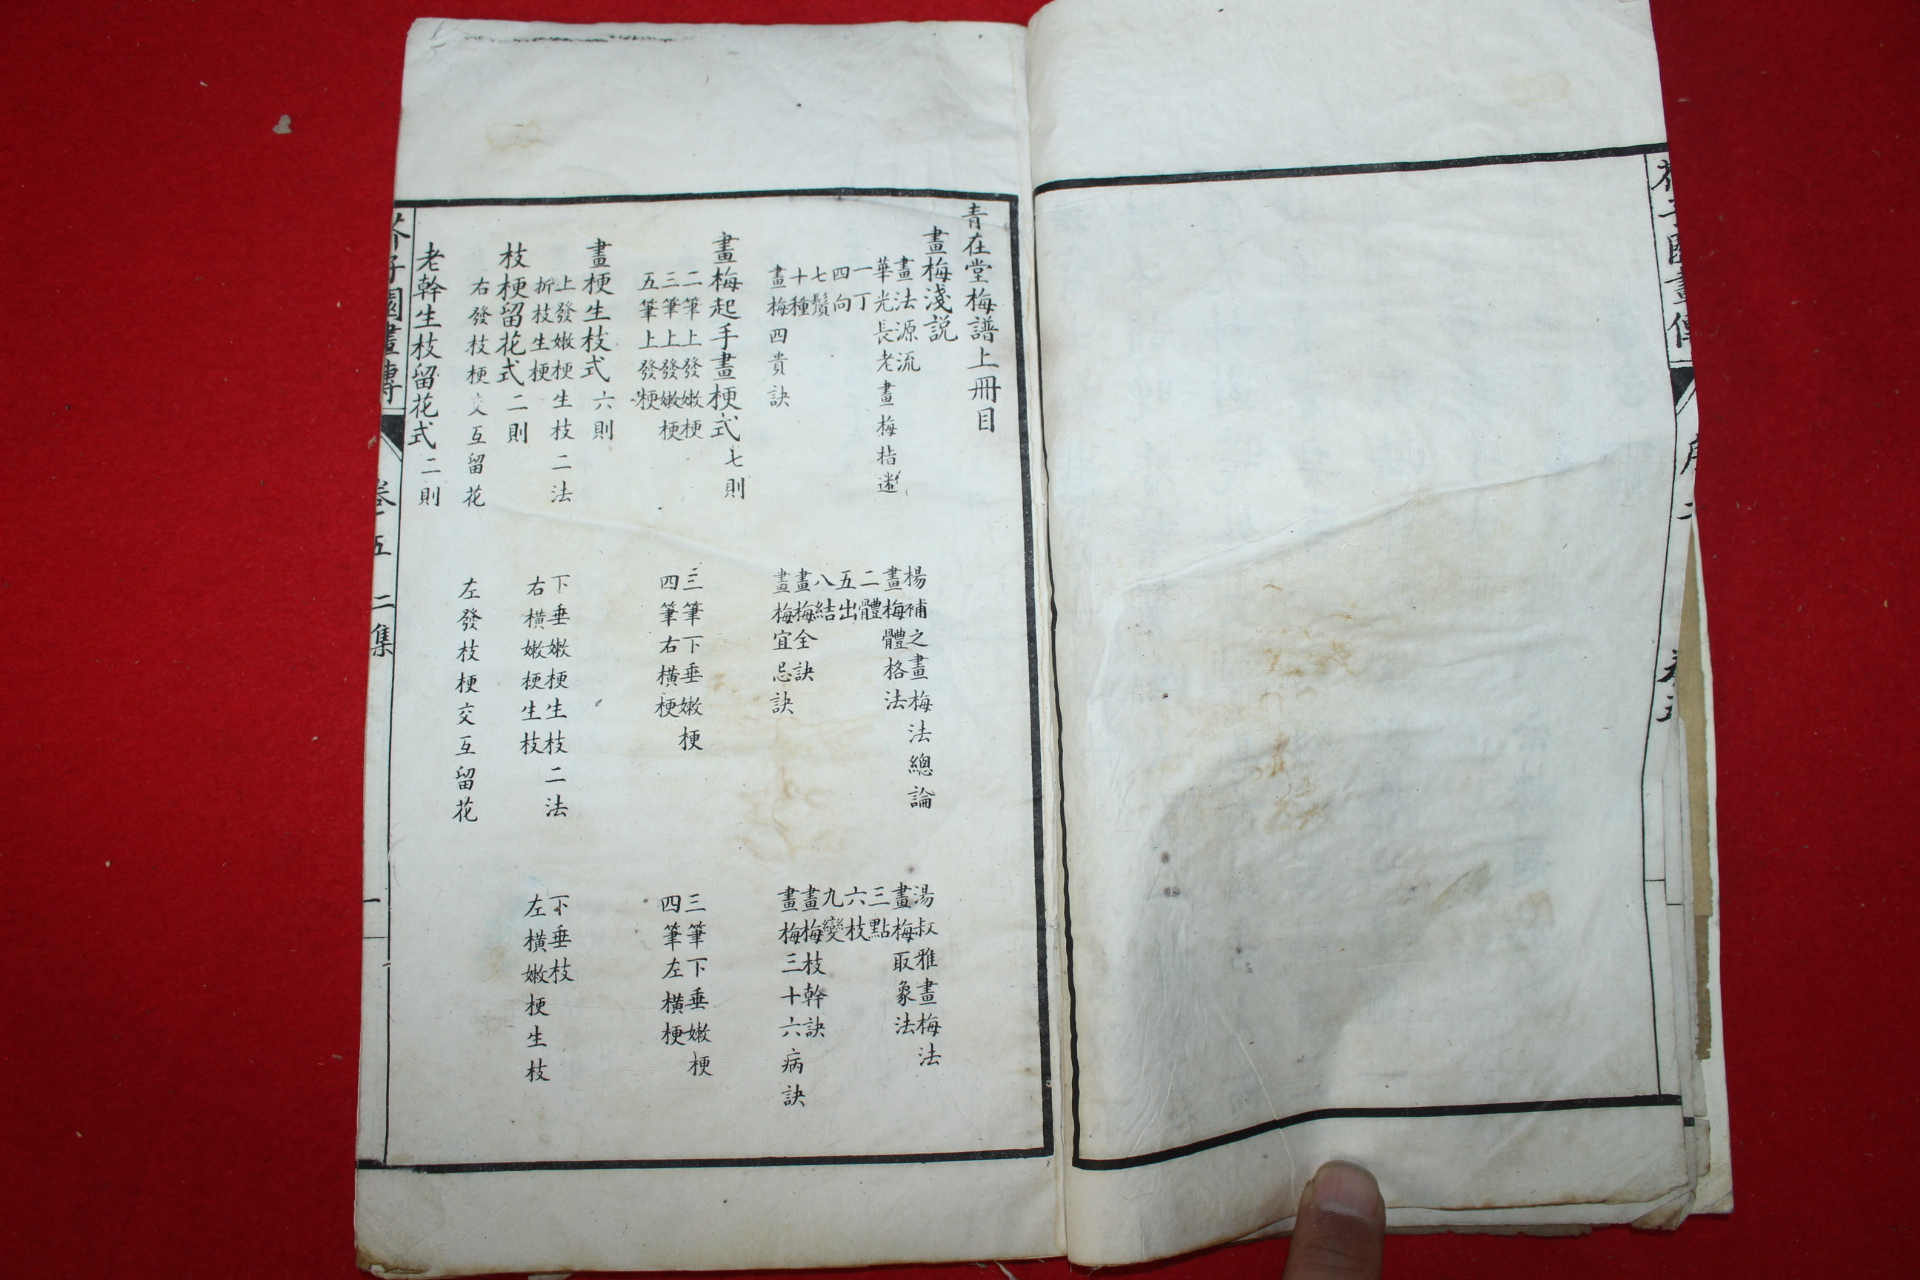 青在堂梅譜上冊目
畫梅淺説
畫法源流 楊補之畫梅法總論 湯叔雅畫梅法
華光長老畫梅指迷 畫梅體格法 畫梅取象法
一丁 二體 三點
四向 五出 六枝
七鬚 八結 九變
十種 畫梅全訣 畫梅枝幹訣
畫梅四貴訣 畫梅宜忌訣 畫梅三十六病訣
畫梅起手畫梗式七則
二筆上發嫩梗 三筆下垂嫩梗 三筆下垂嫩梗
三筆上發嫩梗 四筆右橫梗 四筆左橫梗
五筆上發梗
畫梗生枝式六則
上發嫩梗生枝二法 下垂嫩梗生枝二法 下垂枝
折枝生梗 右橫嫩梗生枝 左橫嫩梗生枝
枝梗留花式二則
右發枝梗交互留花 左發枝梗交互留花
老幹生枝留花式二則
芥子園畫傳 卷 五 二集 一